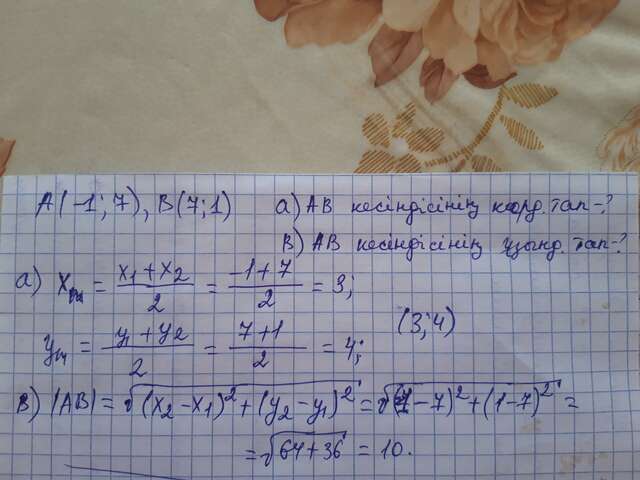 A(-1;7), B(7;1) a) AB кесіндісінің коорд. тап-?
В) AB кесіндісінің ұзынд. тап-?
a) Xₘ = (x₁+x₂)/2 = (-1+7)/2 = 3;
yₘ = (y₁+y₂)/2 = (7+1)/2 = 4; (3;4)
В) |AB| = √((x₂-x₁)²+(y₂-y₁)²) = √((-7)²+(1-7)²) =
= √(64+36) = 10.